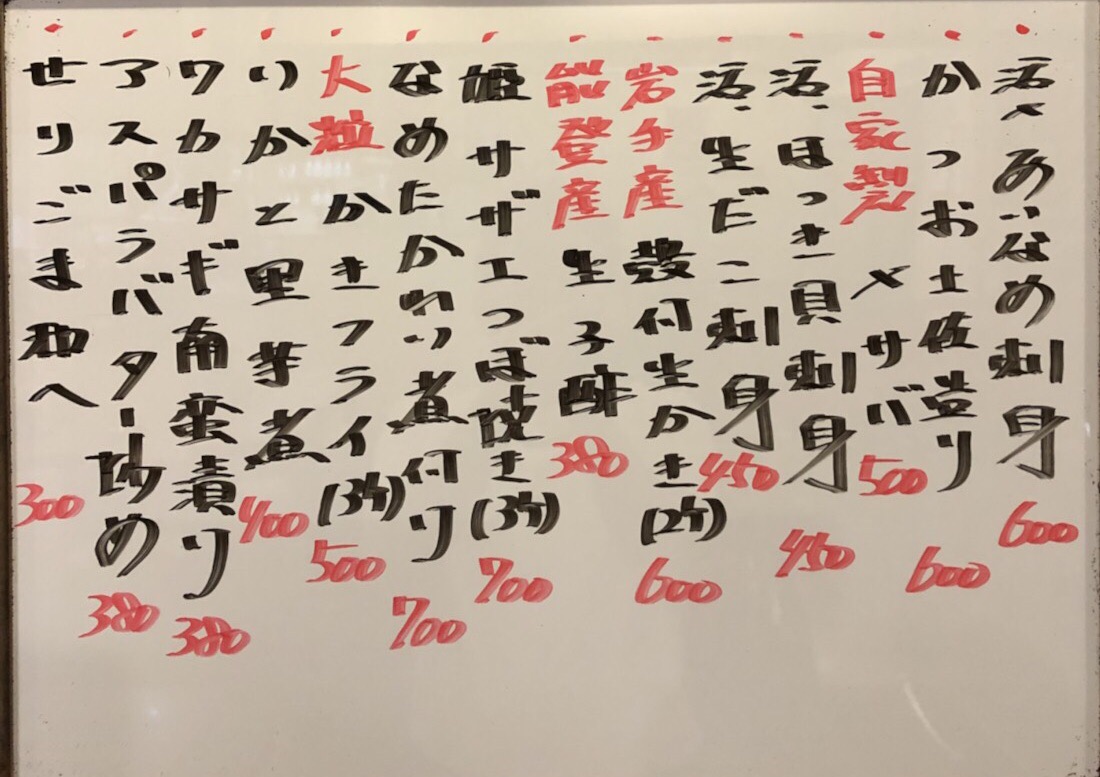 活〆あいなめ刺身 600
かつお土佐造り 600
自家製 〆サバ 500
活、ほっき貝刺身 450
活、生だこ刺身 450
岩手産 殻付生かき(2ケ) 600
能登産 生子酢 380
姫サザエつぼ焼き(3ケ) 700
なめたかれい煮付り 700
大粒 かきフライ(3ケ) 500
いかと里芋煮 400
ワカサギ南蛮漬り 380
アスパラバター炒め 380
せりごま和へ 300